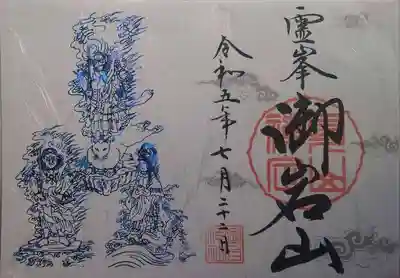 霊峯
御岩山
令和五年七月二十二日